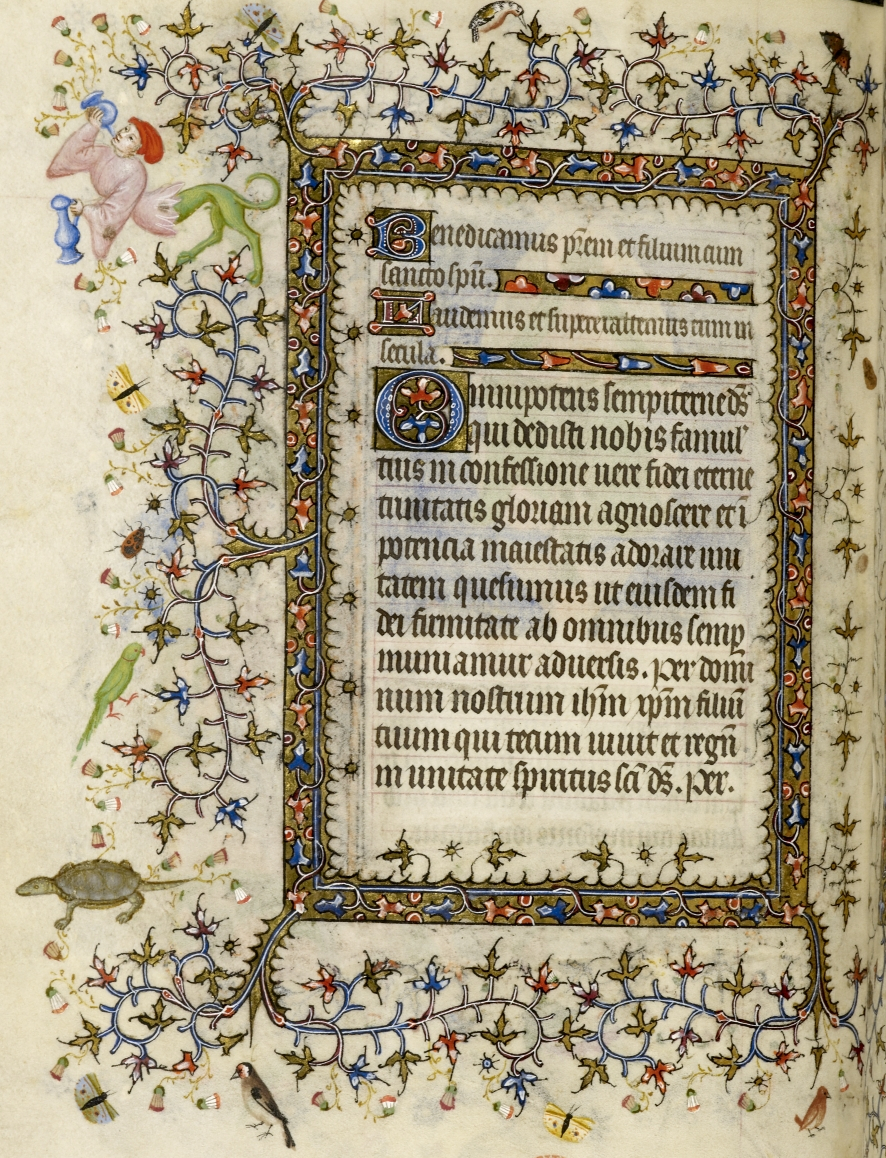 Benedicamus p̄rem et filium cum
sancto sp̄u.
Laudemus et superexaltemus eum in
secula.
Omnipotens sempiterne ds̄
qui dedisti nobis famul'
tuis in confessione uere fidei eterne
trinitatis gloriam agnoscere et ī
potencia maiestatis adorare uni
tatem quesumus ut eiusdem fi
dei firmitate ab omnibus semp̱
muniamur aduersis. Per domi
num nostrum ihm̄ xpm̄ filiū
tuum qui tecum uiuit et regn̄
in unitate spiritus sc̄i ds̄. Per.